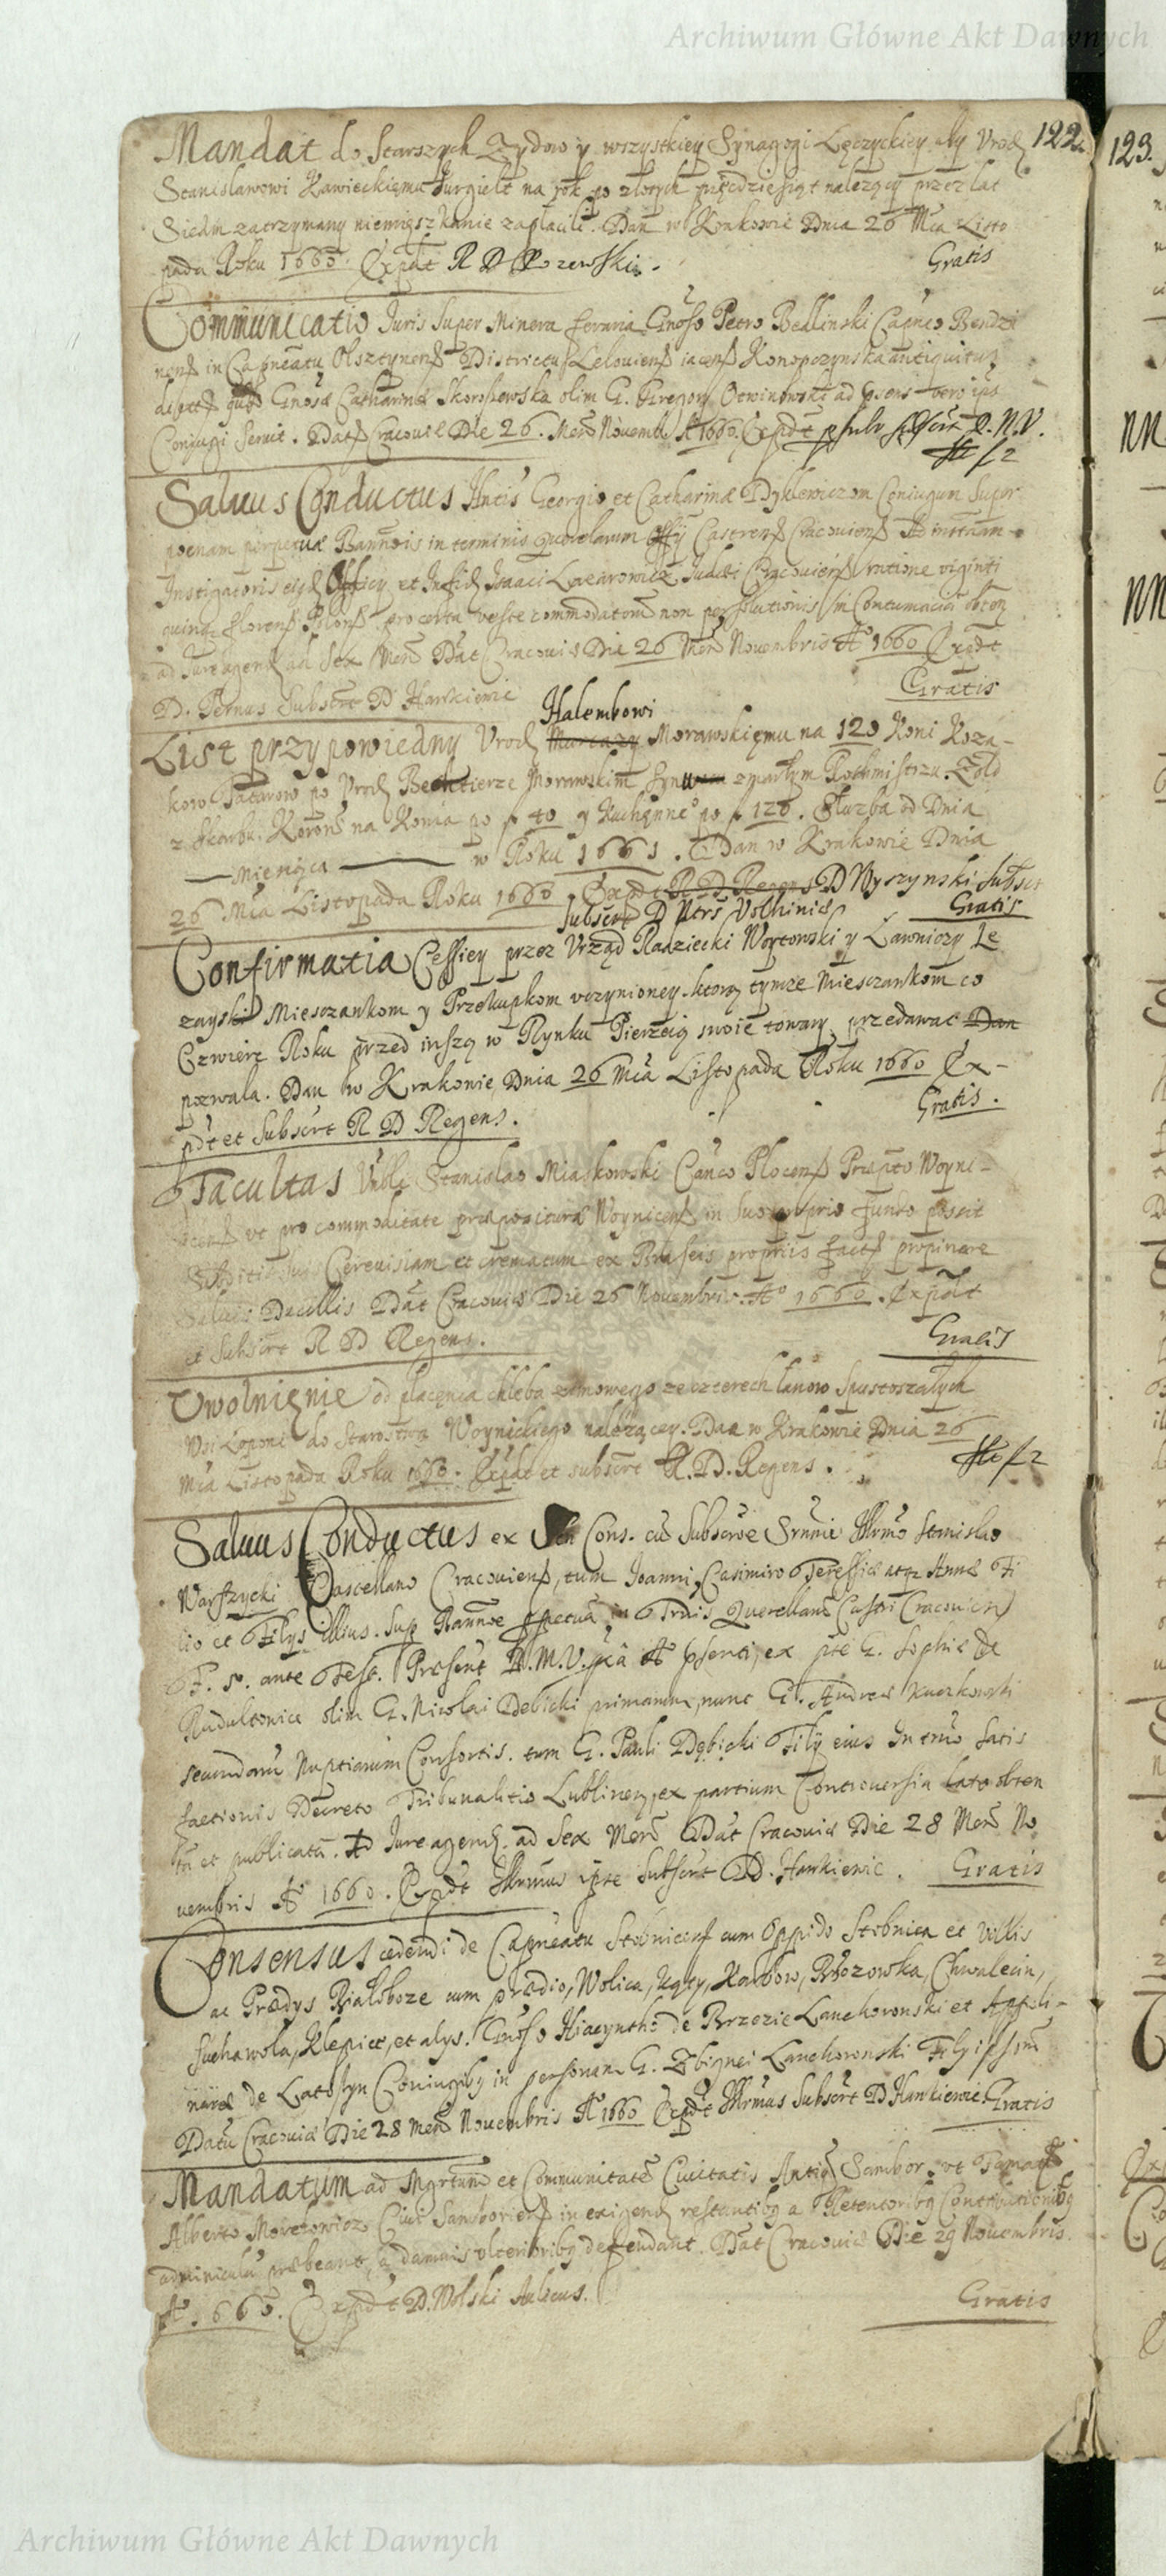 Archiwum Główne Akt Dawnych
122.
123.
Mandat do Starszych Zydow y wszystkiey Synagogi Łęczyckiey aby Vrodz
Stanisławowi Kawieckięmu Iurgielt na rok po złotych pięcdziesiąt nalezący przez lat
Siedm zatrzymany niemięszkanie zapłacili. Dan w Krakowie Dnia 26 Mca Listo
pada Roku 1660. Expdt R D Gratis
Communicatio Iuris Super Minera ferraria Gnoso Petro Bedlinski Capneo Bendzi
nens in Capneatu Olsztynens Districtu Leloviens iacens Konopczynska antiquitus
Gnosa Catharina Skoroszewska olim G. Gregory Otwinowski ad
Coniugi servit. Dat Cracoviæ Die 26. Mens Novemb A 1660. Expdt
f 2
Salvus Conductus Georgio et Catharinæ Dyklewiczom Coniugum Super
poenam perpetuæ Bannois in terminis querelarum Offij Castrens Cracoviens Ad instam
Instigatoris eiusd Officij et Infid Isaaci Lazarowicz Iudæi Cracoviens ratione viginti
quinq florens Polons pro certa veste commodatoms non persolutionis in Contumaciam obten
ad Iure agend ad Sex Mens Dat Cracoviæ Die 26 Mens Novembris Ao 1660 Expdt
D. Pernus Subscrt D Hankiewic Gratis
Halembowi
List przypowiedny Vrodz Murtazy Morawskięmu na 120 Koni Koza-
kow Tatarow po Vrodz Bechtierze Morawskim zmarłym Rothmistrzu. Zołd
z Skarbu Korons na Konia po f 40 y Kuchęnne po f 120. Służba od Dnia
— Miesiąca — w Roku 1661. Dan w Krakowie Dnia
26 Mca Listopada Roku 1660. Expdt R D Regens D Wyszynski Subscr
Subscrt D Ptrs Volhiniæ Gratis
Confirmatia Cessiey przez Vrząd Radziecki Woytowski y Ławniczy Le
zayski Miesczankom y Przekupkom vczynioney ktory tymze Miesczankom co
Czwierc Roku przed inszą w Rynku Pierzeią swoie towary przedawac Dan
pozwala. Dan w Krakowie Dnia 26 Mca Listopada Roku 1660 Ex-
pdt et Subscrt R D Regens. Gratis.
Facultas Vnbli Stanislao Miaskowski Canco Plocens Præpto Woyni-
cens vt pro commoditate præpositura Woynicens in Suo proprio fundo possit
Subditis suis Cerevisiam et crematum ex Braseis propriis facts propinare
Salvis Ducillis Dat Cracoviæ Die 26 Novembris Ao 1660. Expdt
et Subscrt R D Regens. Gratis
Vwolnięnie od płacęnia chleba zimowego ze czterech łanow Spustoszałych
Wsi Łoponi do Starostwa Woynickiego nalezącey. Dan w Krakowie Dnia 26
Mca Listopada Roku 1660. Expdt et subscrt R. D. Regens. f 2
Salvus Conductus ex Sen Cons. cu Subscroe Srmni Illrmo Stanislao
Warszycki Cascellano Cracoviens, tum Ioanni, Casimiro Teressiæ atq Annæ Fi
lio et Filys illius. Sup Bannoe in Trnis Querellaru Castri Cracovien
F. 5. ante Fest. Præsent B.M.V. ex pte G. Sophiæ de
Radultowice olim G. Nicolai Dębicki primarum, nunc G. Andreæ Kuczkowski
secundaru Nuptiarum Consortis. tum G. Pauli Dębicki Filij eius In trno Satis
factionis Decreto Tribunalitio Lublinens, ex partium Controversia lato obten
tu et publicatu. Ad Iure agend. ad Sex Mens Dat Cracoviæ Die 28 Mens No
vembris Ao 1660. Expdt Illrmus ipse Subscrt D. Hankiewic. Gratis
Consensus cedendi de Capneatu Stobnicens cum Oppido Stobnica et Villis
ac Prædys Białoboze cum prædio, Wolica, Kąty, Rzozowka, Chwalecin,
Suchawola, Klępice, et alys. Gnoso Hiacyntho de Brzezie Lanckoronski et Appoli-
nariæ de Latoszyn Coniugibq in personam G. Zbignei Lanckoronski Filij ipsoru
Datu Cracoviæ Die 28 Mens Novembris Ao 1660 Expdt Illrmus Subscrt D Hankiewic. Gratis
Mandatum ad Mgrtum et Communitate Civitatis Sambor. vt
Alberto Moretowicz Civi Samboriens in exigend restantibq a Retentoribq Contributionibq
adminiculu præbeant, a damnis ulterioribq defendant. Dat Cracoviæ Die 29 Novembris
Ao 1660. Expdt D. Wolski Aulicus. Gratis
Archiwum Główne Akt Dawnych